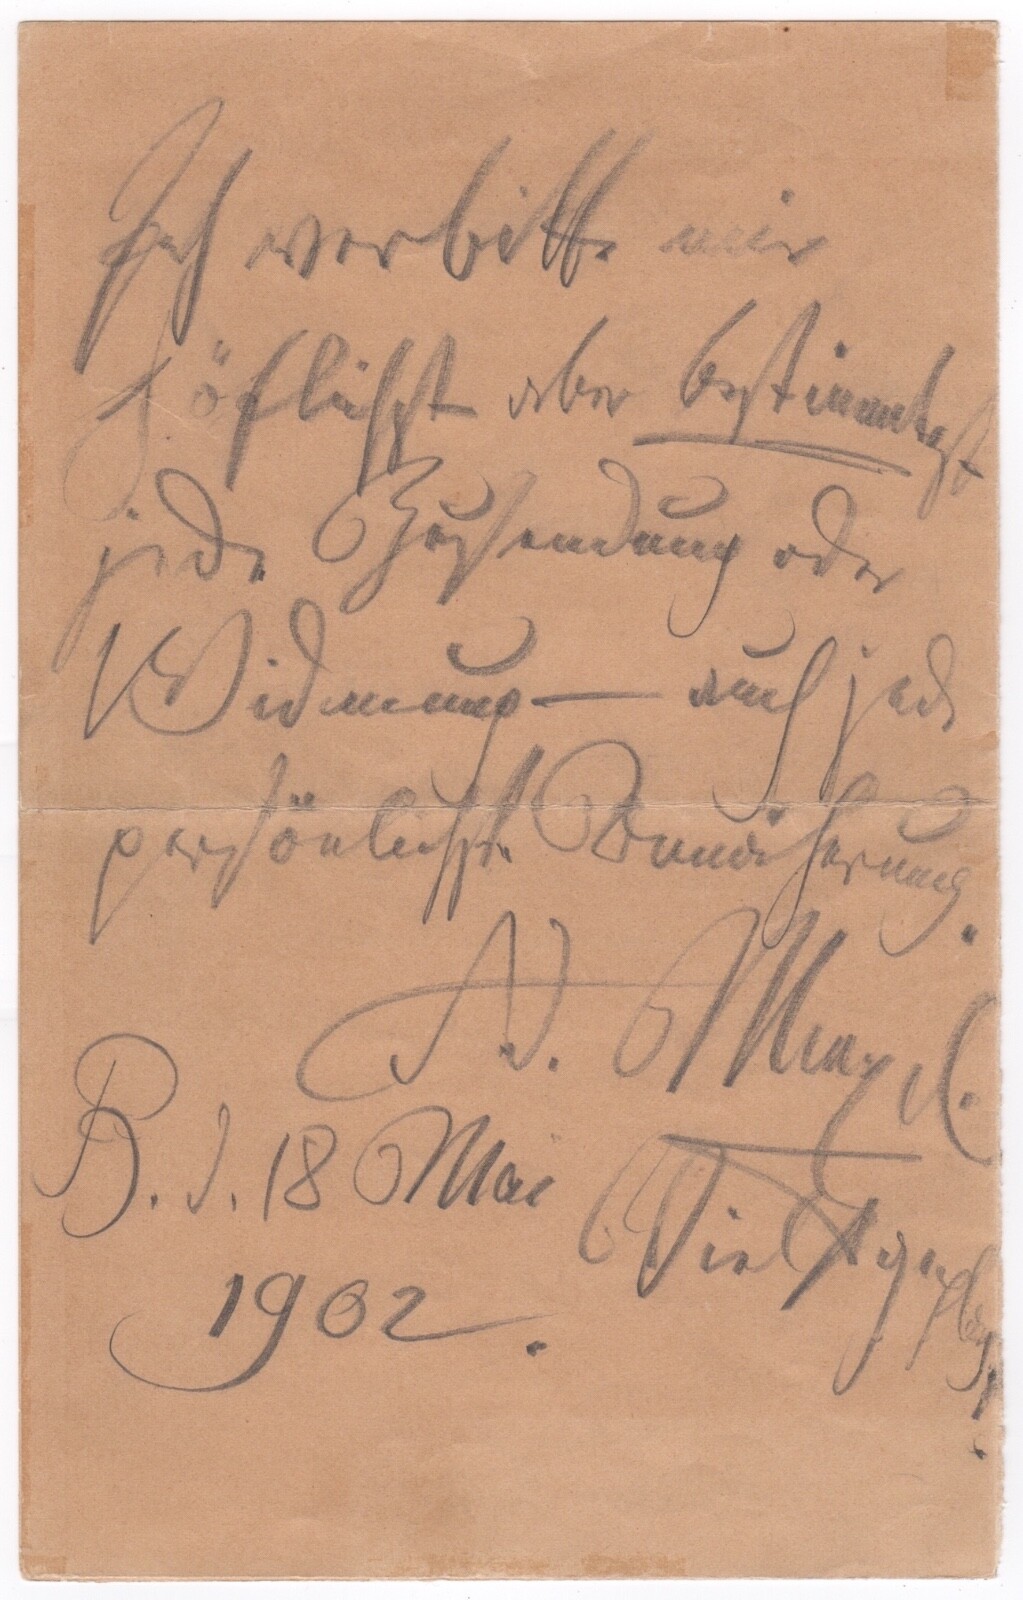 Ich verbitte mir
höflichst aber bestimmtest
jede Zusendung oder
Widmung — auch jede
persönlichste Annäherung.
A. Menzel.
B. d. 18 Mai
1902.